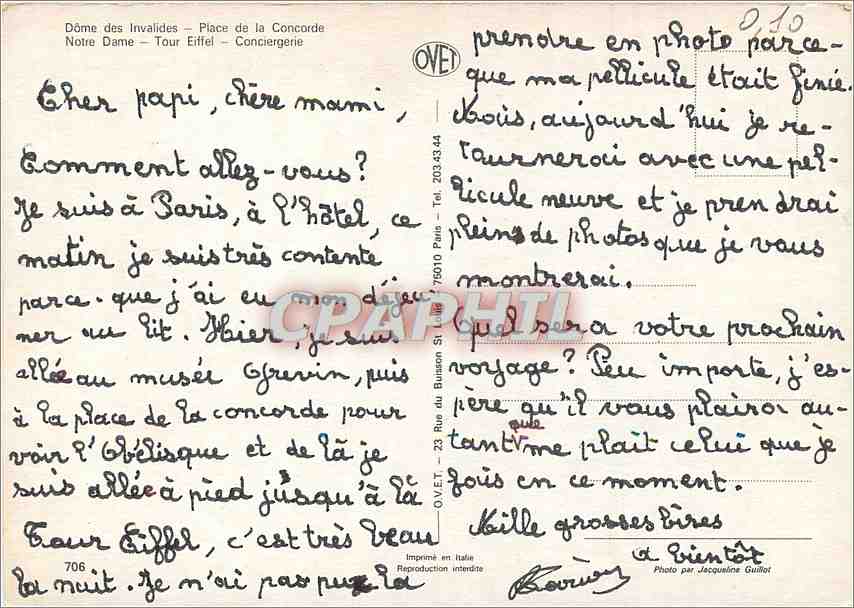 Dôme des Invalides – Place de la Concorde
Notre Dame – Tour Eiffel – Conciergerie
Cher papi, chère mami,
Comment allez-vous?
Je suis à Paris, à l'hôtel, ce
matin je suis très contente
parce-que j'ai eu mon déjeu
ner au lit. Hier, je suis
allée au musée Grevin, puis
à la place de la concorde pour
voir l'Obélisque et de là je
suis allée à pied jusqu'à la
Tour Eiffel, c'est très beau
la nuit. Je n'ai pas pu la
706
Imprimé en Italie
Reproduction interdite
OVET
O.V.E.T. – 23 Rue du Buisson St Louis 75010 Paris – Tel. 203 43 44
CPAPHIL
0,10
prendre en photo parce-
que ma pellicule était finie.
Mais, aujourd'hui je re-
tournerai avec une pel-
licule neuve et je prendrai
pleins de photos que je vous
montrerai.
Quel sera votre prochain
voyage? Peu importe, j'es-
père qu'il vous plaira au-
tant que me plait celui que je
fais en ce moment.
Mille grosses bires
a bientôt
Photo par Jacqueline Guillot